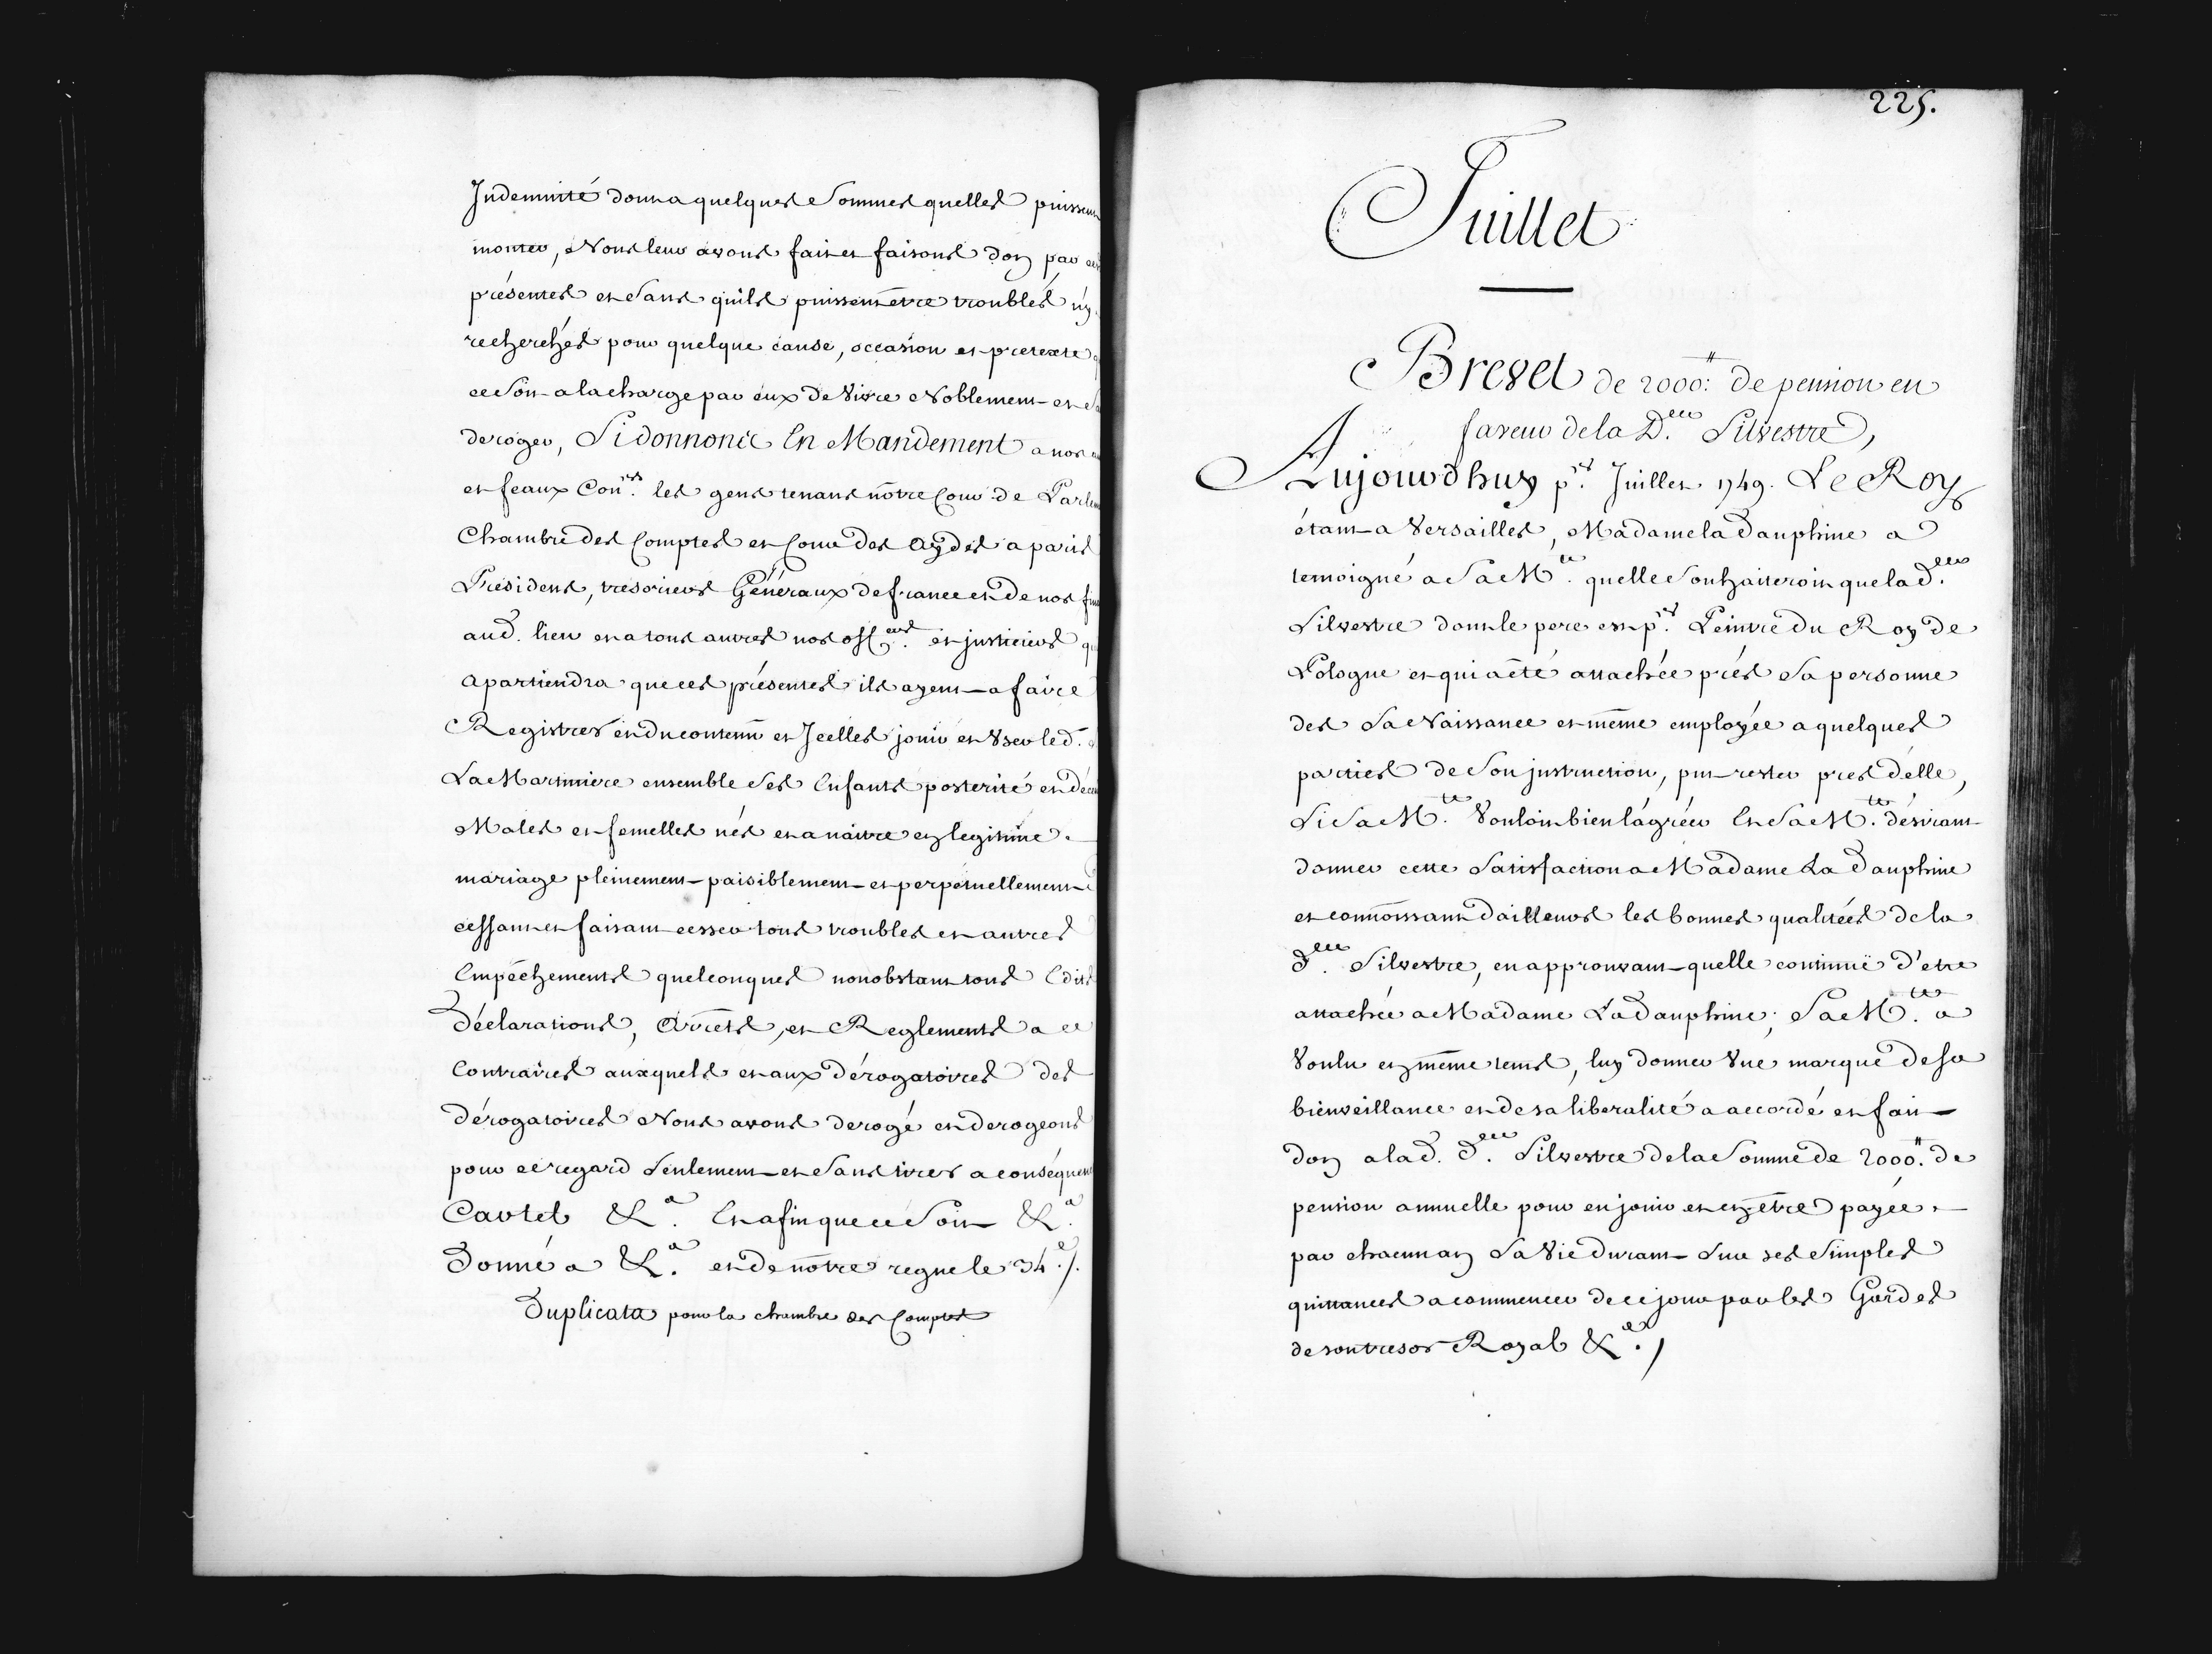 Indemnité dont a quelques Sommes quelles puissent
monter, Nous leur avons fait et faisons don par ces
présentes et Sans quils puissent être troublés ny
recherchés pour quelque cause, occasion et pretexte
ce Soit a la charge par eux de Vivre Noblement et Sa
deroger, Si donnons En Mandement a nos
et feaux Con.rs les gens tenans nôtre Cour de Parlem
Chambre des Comptes et Cour des Aydes a paris
Présidens, tresoriers Généraux de france et de nos fin
aud. lieu et a tous autres nos off.ers et justiciers q
apartiendra que ces présentes ils ayent a faire
Registrer et du contenu en Icelles jouir et Vser led.
La Martiniere ensemble Ses Enfants posterité et dé
Males et femelles nés et a naitre en legitime
mariage pleinement paisiblement et perpetuellement
cessant et faisant cesser tous troubles et autres
Empêchements quelconques nonobstant tous Edits
Déclarations, Arrêts, et Reglements a ce
Contraires auxquels et aux dérogatoires des
dérogatoires Nous avons derogé et derogeons
pour ce regard Seulement et Sans tirer a conséquen
Car tel &.a Et afin que ce Soit &.a
Donné a &.a et de nôtre regne le 34.e /.
Duplicata pour la chambre des Comptes
225.
Juillet
Brevet de 2000.# de pension en
faveur de la D.elle Silvestre,
Aujourdhuy p.er Juillet 1749. Le Roy
étant a Versailles, Madame la Dauphine a
temoigné a Sa M.té quelle Souhaiteroit que la d.elle
Silvestre dont le pere est p.er Peintre du Roy de
Pologne et qui a été attachée prés Sa personne
des Sa Naissance et même employée a quelques
parties de Son jnstruction, put rester pres d'elle,
Si Sa M.té Vouloit bien lágréer Et Sa M.té désirant
donner cette Satisfaction a Madame La Dauphine
et connoissant dailleurs les bonnes qualitées de la
d.elle Silvestre, en approuvant quelle continuë d'etre
attachée a Madame La Dauphine; Sa M.té a
Voulu en même tems, luy donner Vne marque de sa
bienveillance et de sa liberalité a accordé et fait
don a lad. d.elle Silvestre de la Somme de 2000.# de
pension annuelle pour en jouir et en être payée
par chacun an Sa Vie durant Sur ses Simples
quittances a commencer de ce jour par les Gardes
de son tresor Royal &.a /